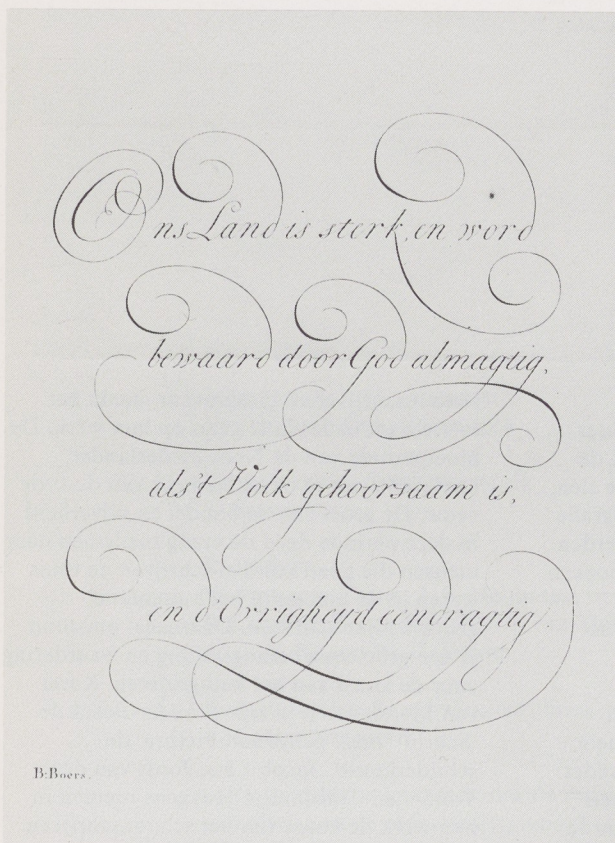 Ons Land is sterk, en word
bewaard door God almagtig,
als't Volk gehoorsaam is,
en d'Ovrigheyd eendragtig.
B: Boers.